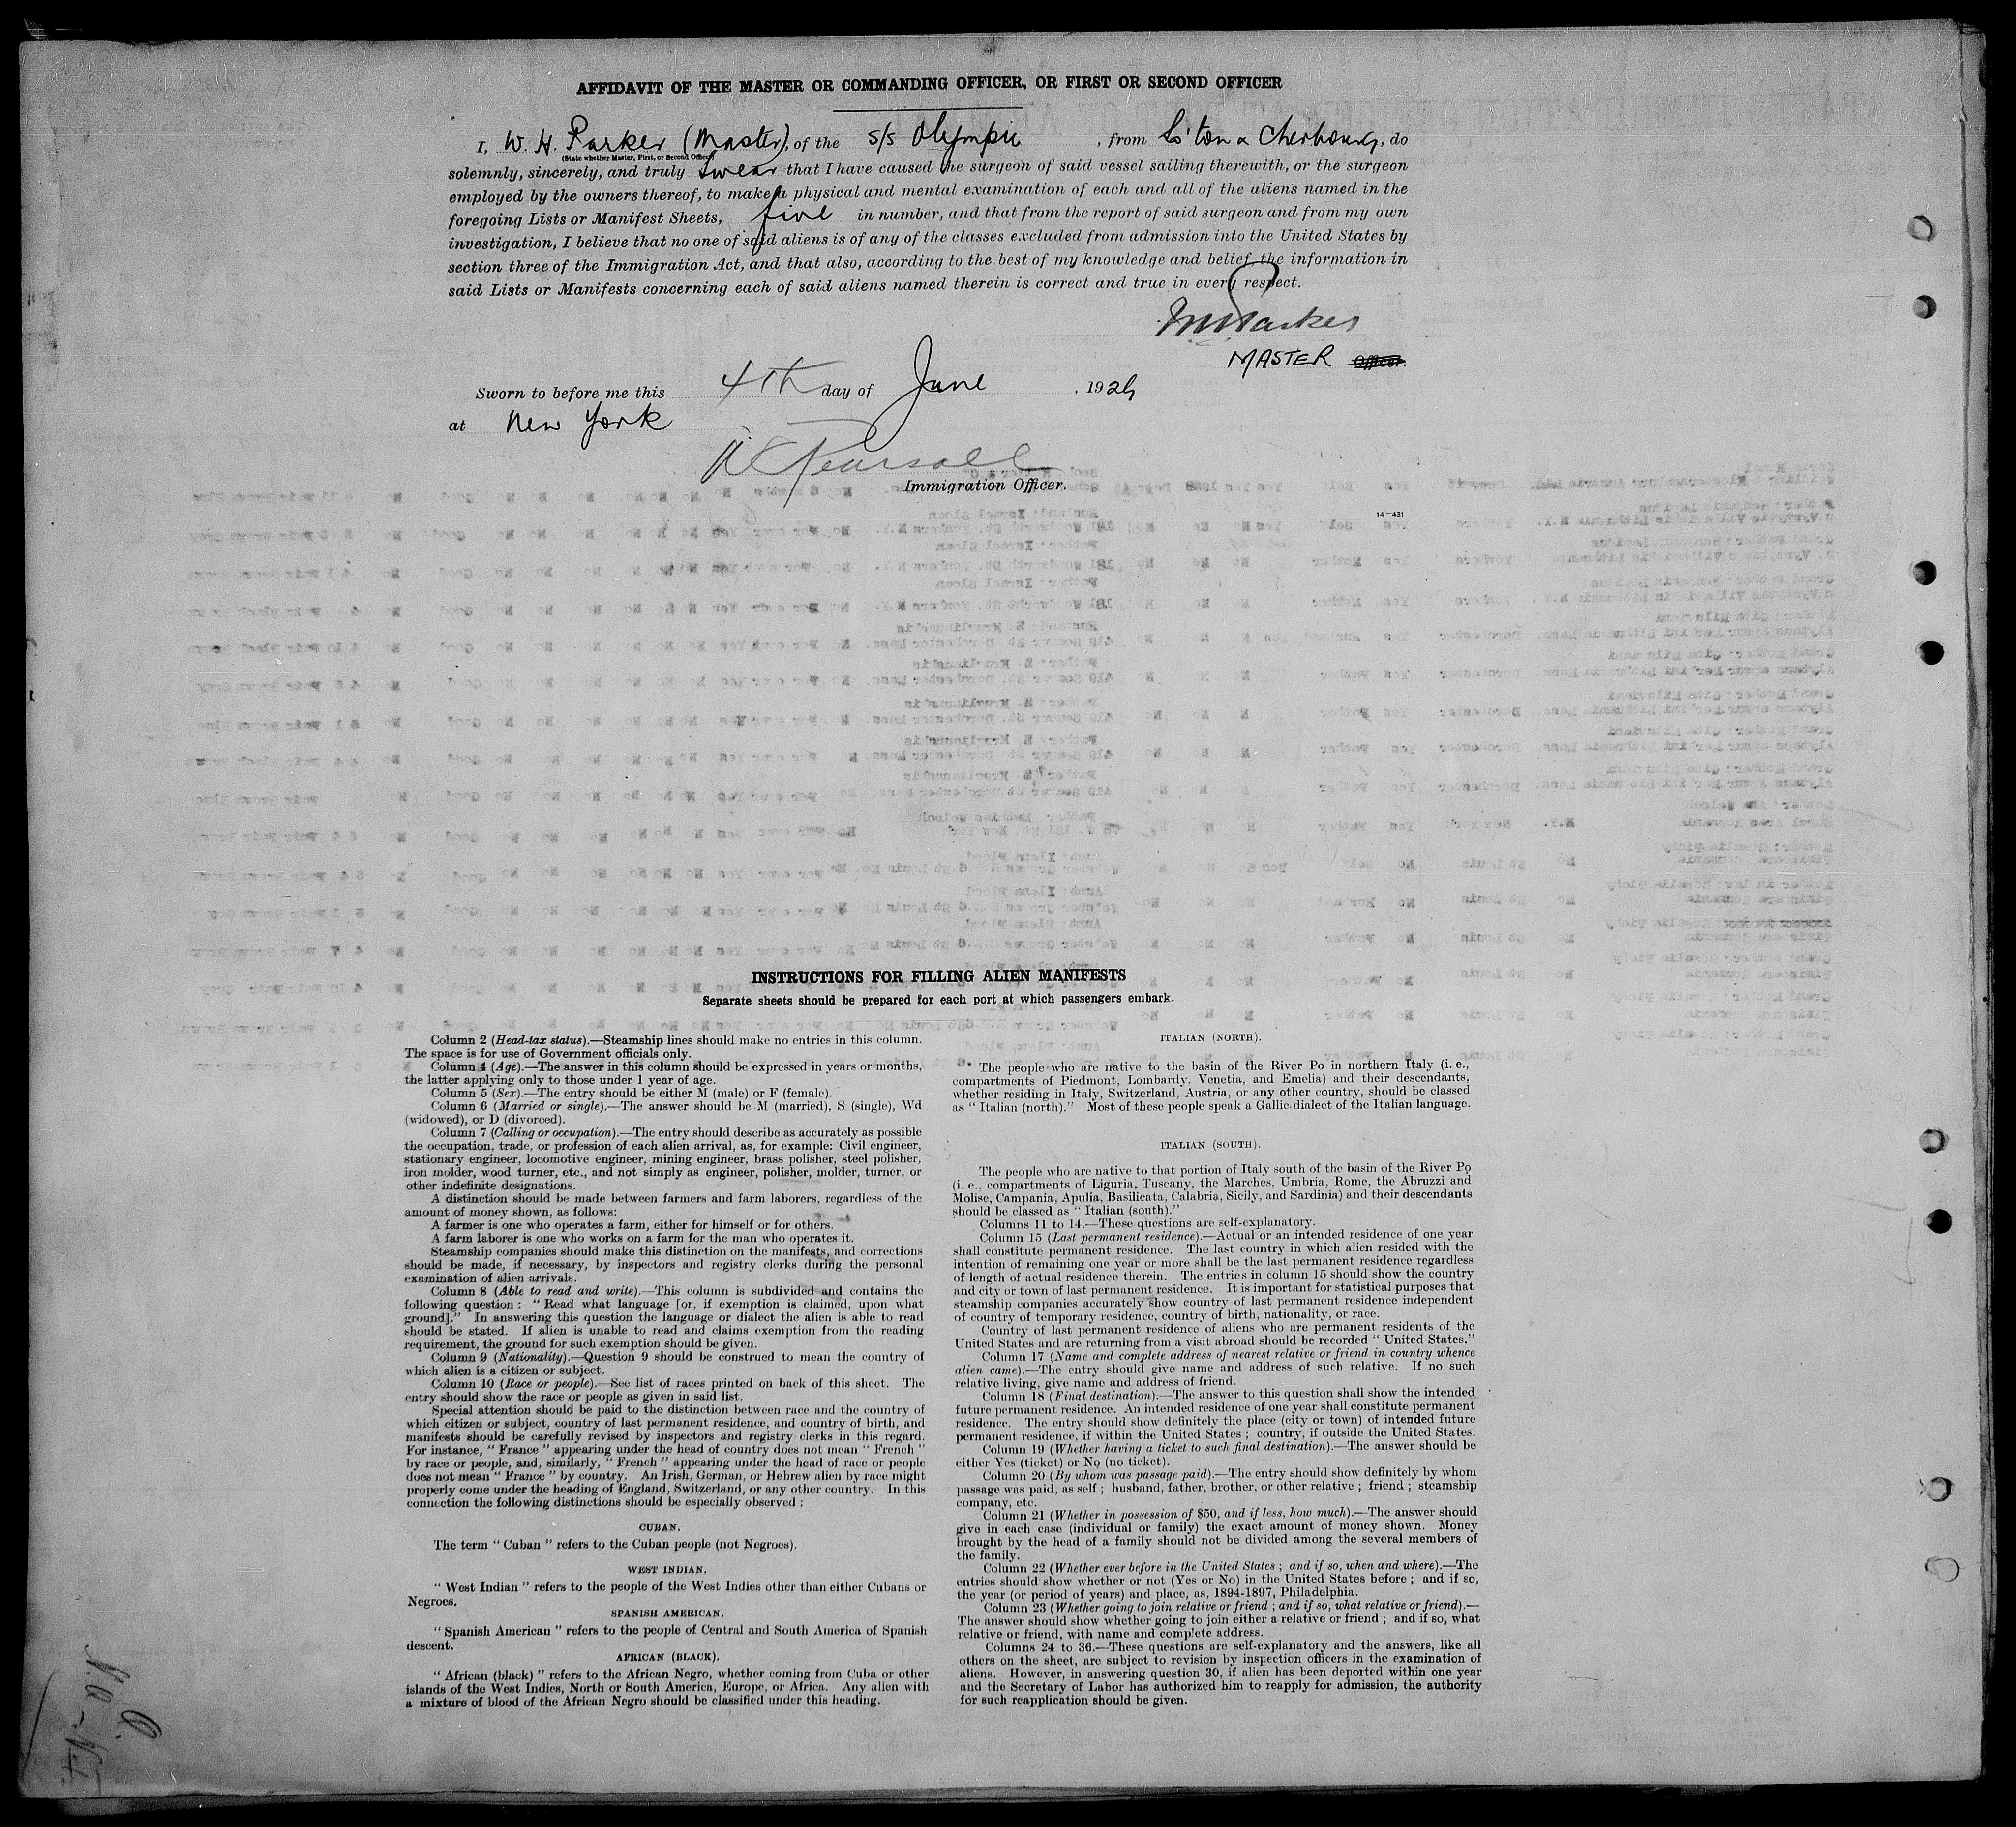 AFFIDAVIT OF THE MASTER OR COMMANDING OFFICER, OR FIRST OR SECOND OFFICER
I, W. H. Parker (Master), of the s/s Olympic, from So'ton & Cherbourg, do
(State whether Master, First, or Second Officer)
solemnly, sincerely, and truly swear that I have caused the surgeon of said vessel sailing therewith, or the surgeon
employed by the owners thereof, to make a physical and mental examination of each and all of the aliens named in the
foregoing Lists or Manifest Sheets, five in number, and that from the report of said surgeon and from my own
investigation, I believe that no one of said aliens is of any of the classes excluded from admission into the United States by
section three of the Immigration Act, and that also, according to the best of my knowledge and belief, the information in
said Lists or Manifests concerning each of said aliens named therein is correct and true in every respect.
WHParker
MASTER Officer.
Sworn to before me this 4th day of June, 192
at New York
Pearsall
Immigration Officer.
14—431
INSTRUCTIONS FOR FILLING ALIEN MANIFESTS
Separate sheets should be prepared for each port at which passengers embark.
Column 2 (Head-tax status).—Steamship lines should make no entries in this column.
The space is for use of Government officials only.
Column 4 (Age).—The answer in this column should be expressed in years or months,
the latter applying only to those under 1 year of age.
Column 5 (Sex).—The entry should be either M (male) or F (female).
Column 6 (Married or single).—The answer should be M (married), S (single), Wd
(widowed), or D (divorced).
Column 7 (Calling or occupation).—The entry should describe as accurately as possible
the occupation, trade, or profession of each alien arrival, as, for example: Civil engineer,
stationary engineer, locomotive engineer, mining engineer, brass polisher, steel polisher,
iron molder, wood turner, etc., and not simply as engineer, polisher, molder, turner, or
other indefinite designations.
A distinction should be made between farmers and farm laborers, regardless of the
amount of money shown, as follows:
A farmer is one who operates a farm, either for himself or for others.
A farm laborer is one who works on a farm for the man who operates it.
Steamship companies should make this distinction on the manifests, and corrections
should be made, if necessary, by inspectors and registry clerks during the personal
examination of alien arrivals.
Column 8 (Able to read and write).—This column is subdivided and contains the
following question: "Read what language [or, if exemption is claimed, upon what
ground]." In answering this question the language or dialect the alien is able to read
should be stated. If alien is unable to read and claims exemption from the reading
requirement, the ground for such exemption should be given.
Column 9 (Nationality).—Question 9 should be construed to mean the country of
which alien is a citizen or subject.
Column 10 (Race or people).—See list of races printed on back of this sheet. The
entry should show the race or people as given in said list.
Special attention should be paid to the distinction between race and the country of
which citizen or subject, country of last permanent residence, and country of birth, and
manifests should be carefully revised by inspectors and registry clerks in this regard.
For instance, "France" appearing under the head of country does not mean "French"
by race or people, and, similarly, "French" appearing under the head of race or people
does not mean "France" by country. An Irish, German, or Hebrew alien by race might
properly come under the heading of England, Switzerland, or any other country. In this
connection the following distinctions should be especially observed:
CUBAN.
The term "Cuban" refers to the Cuban people (not Negroes).
WEST INDIAN.
"West Indian" refers to the people of the West Indies other than either Cubans or
Negroes.
SPANISH AMERICAN.
"Spanish American" refers to the people of Central and South America of Spanish
descent.
AFRICAN (BLACK).
"African (black)" refers to the African Negro, whether coming from Cuba or other
islands of the West Indies, North or South America, Europe, or Africa. Any alien with
a mixture of blood of the African Negro should be classified under this heading.
ITALIAN (NORTH).
The people who are native to the basin of the River Po in northern Italy (i. e.,
compartments of Piedmont, Lombardy, Venetia, and Emelia) and their descendants,
whether residing in Italy, Switzerland, Austria, or any other country, should be classed
as "Italian (north)." Most of these people speak a Gallic dialect of the Italian language.
ITALIAN (SOUTH).
The people who are native to that portion of Italy south of the basin of the River Po
(i. e., compartments of Liguria, Tuscany, the Marches, Umbria, Rome, the Abruzzi and
Molise, Campania, Apulia, Basilicata, Calabria, Sicily, and Sardinia) and their descendants
should be classed as "Italian (south)."
Columns 11 to 14.—These questions are self-explanatory.
Column 15 (Last permanent residence).—Actual or an intended residence of one year
shall constitute permanent residence. The last country in which alien resided with the
intention of remaining one year or more shall be the last permanent residence regardless
of length of actual residence therein. The entries in column 15 should show the country
and city or town of last permanent residence. It is important for statistical purposes that
steamship companies accurately show country of last permanent residence independent
of country of temporary residence, country of birth, nationality, or race.
Country of last permanent residence of aliens who are permanent residents of the
United States and are returning from a visit abroad should be recorded "United States."
Column 17 (Name and complete address of nearest relative or friend in country whence
alien came).—The entry should give name and address of such relative. If no such
relative living, give name and address of friend.
Column 18 (Final destination).—The answer to this question shall show the intended
future permanent residence. An intended residence of one year shall constitute permanent
residence. The entry should show definitely the place (city or town) of intended future
permanent residence, if within the United States; country, if outside the United States.
Column 19 (Whether having a ticket to such final destination).—The answer should be
either Yes (ticket) or No (no ticket).
Column 20 (By whom was passage paid).—The entry should show definitely by whom
passage was paid, as self; husband, father, brother, or other relative; friend; steamship
company, etc.
Column 21 (Whether in possession of $50, and if less, how much).—The answer should
give in each case (individual or family) the exact amount of money shown. Money
brought by the head of a family should not be divided among the several members of
the family.
Column 22 (Whether ever before in the United States; and if so, when and where).—The
entries should show whether or not (Yes or No) in the United States before; and if so,
the year (or period of years) and place, as, 1894-1897, Philadelphia.
Column 23 (Whether going to join relative or friend; and if so, what relative or friend).—
The answer should show whether going to join either a relative or friend; and if so, what
relative or friend, with name and complete address.
Columns 24 to 36.—These questions are self-explanatory and the answers, like all
others on the sheet, are subject to revision by inspection officers in the examination of
aliens. However, in answering question 30, if alien has been deported within one year
and the Secretary of Labor has authorized him to reapply for admission, the authority
for such reapplication should be given.